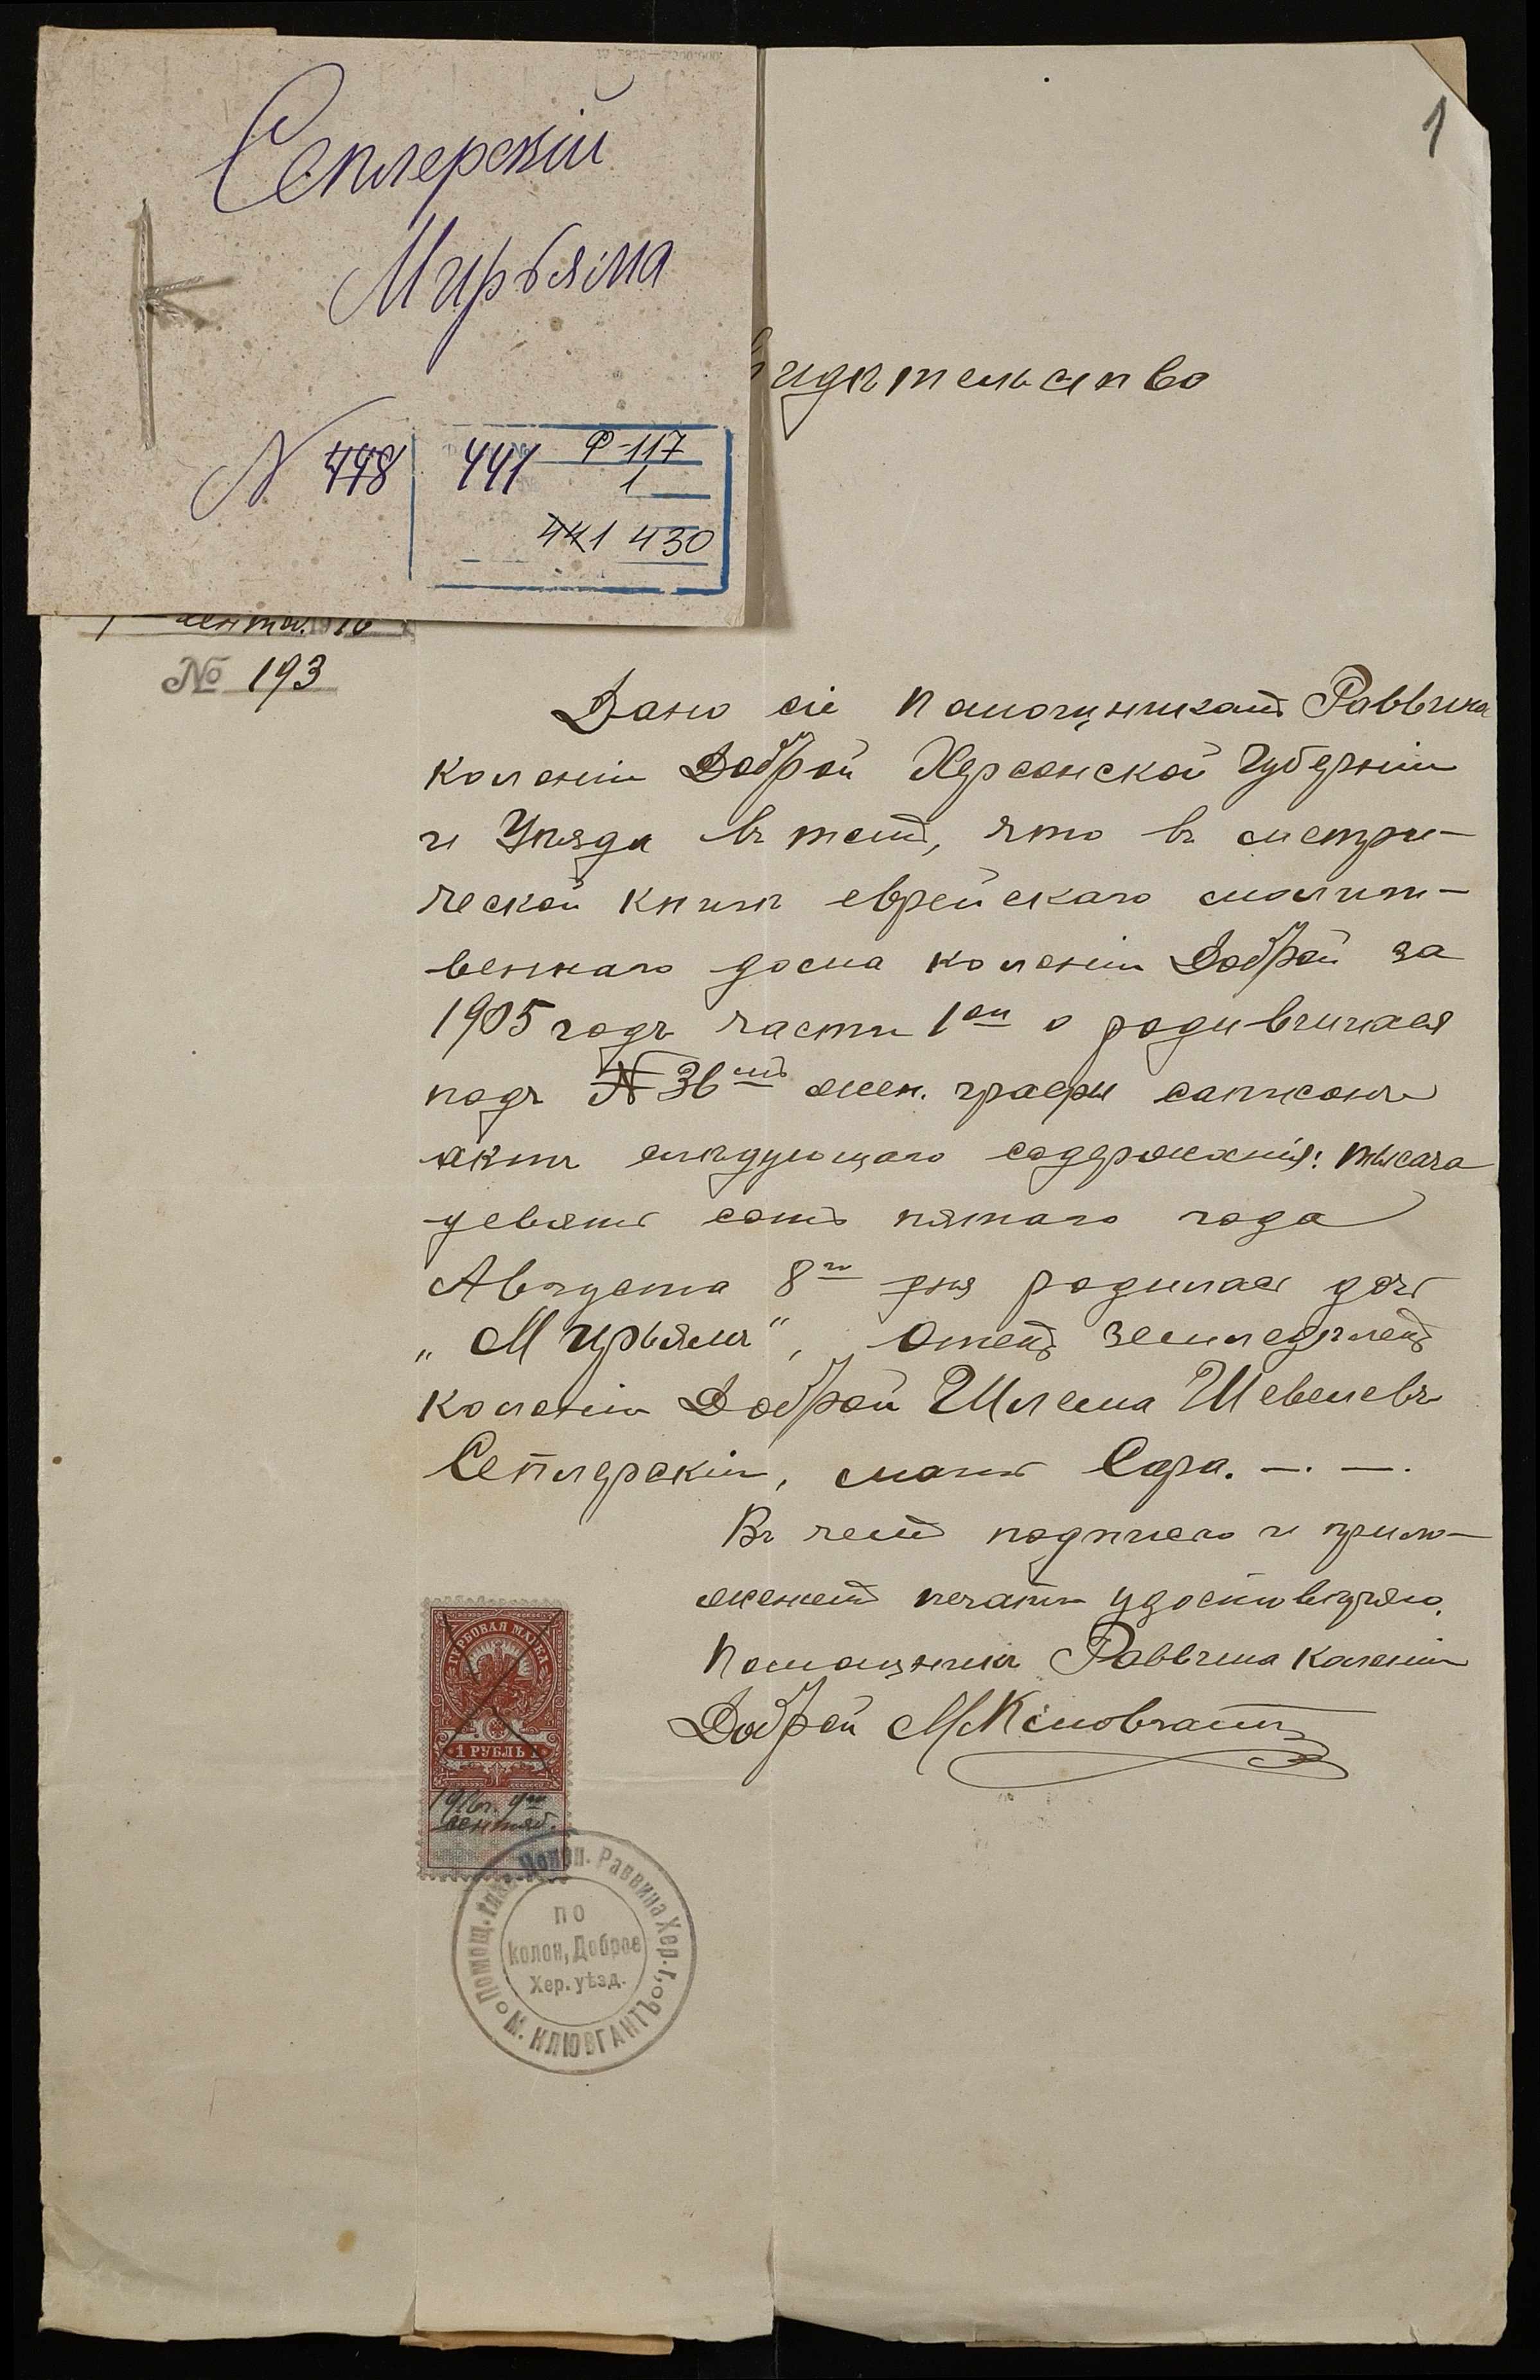 Сеплерскій
Мирьяма
N 448
441 Ф-117
1
441 430
1
сентя. 1916
№ 193
видѣтельство
Дано сіе Помощникомъ Раввина
колоніи Доброй Херсонской Губерніи
и Уѣзда въ томъ, что въ метри-
ческой книгѣ еврейскаго молит-
веннаго дома колоніи Доброй за
1905 годъ части 1ой о родившихся
подъ № 36мъ жен. графы записанъ
актъ слѣдующаго содержанія: тысяча
девять сотъ пятаго года
Августа 8го дня родилась дочь
„Мирьямъ", Отецъ земледѣлецъ
колоніи Доброй Шлема Шевелевъ
Сеплерскій, мать Сора. —. —.
Въ чемъ подписью и прило-
женіемъ печати удостовѣряю.
Помощникъ Раввина колоніи
Доброй М Клювгантъ
ГЕРБОВАЯ МАРКА
1 РУБЛЬ 1
1916г. 9го
сентяб.
Помощ. Раввина Хер. Г.
по
колон, Доброе
Хер. уѣзд.
М. КЛЮВГАНТЪ